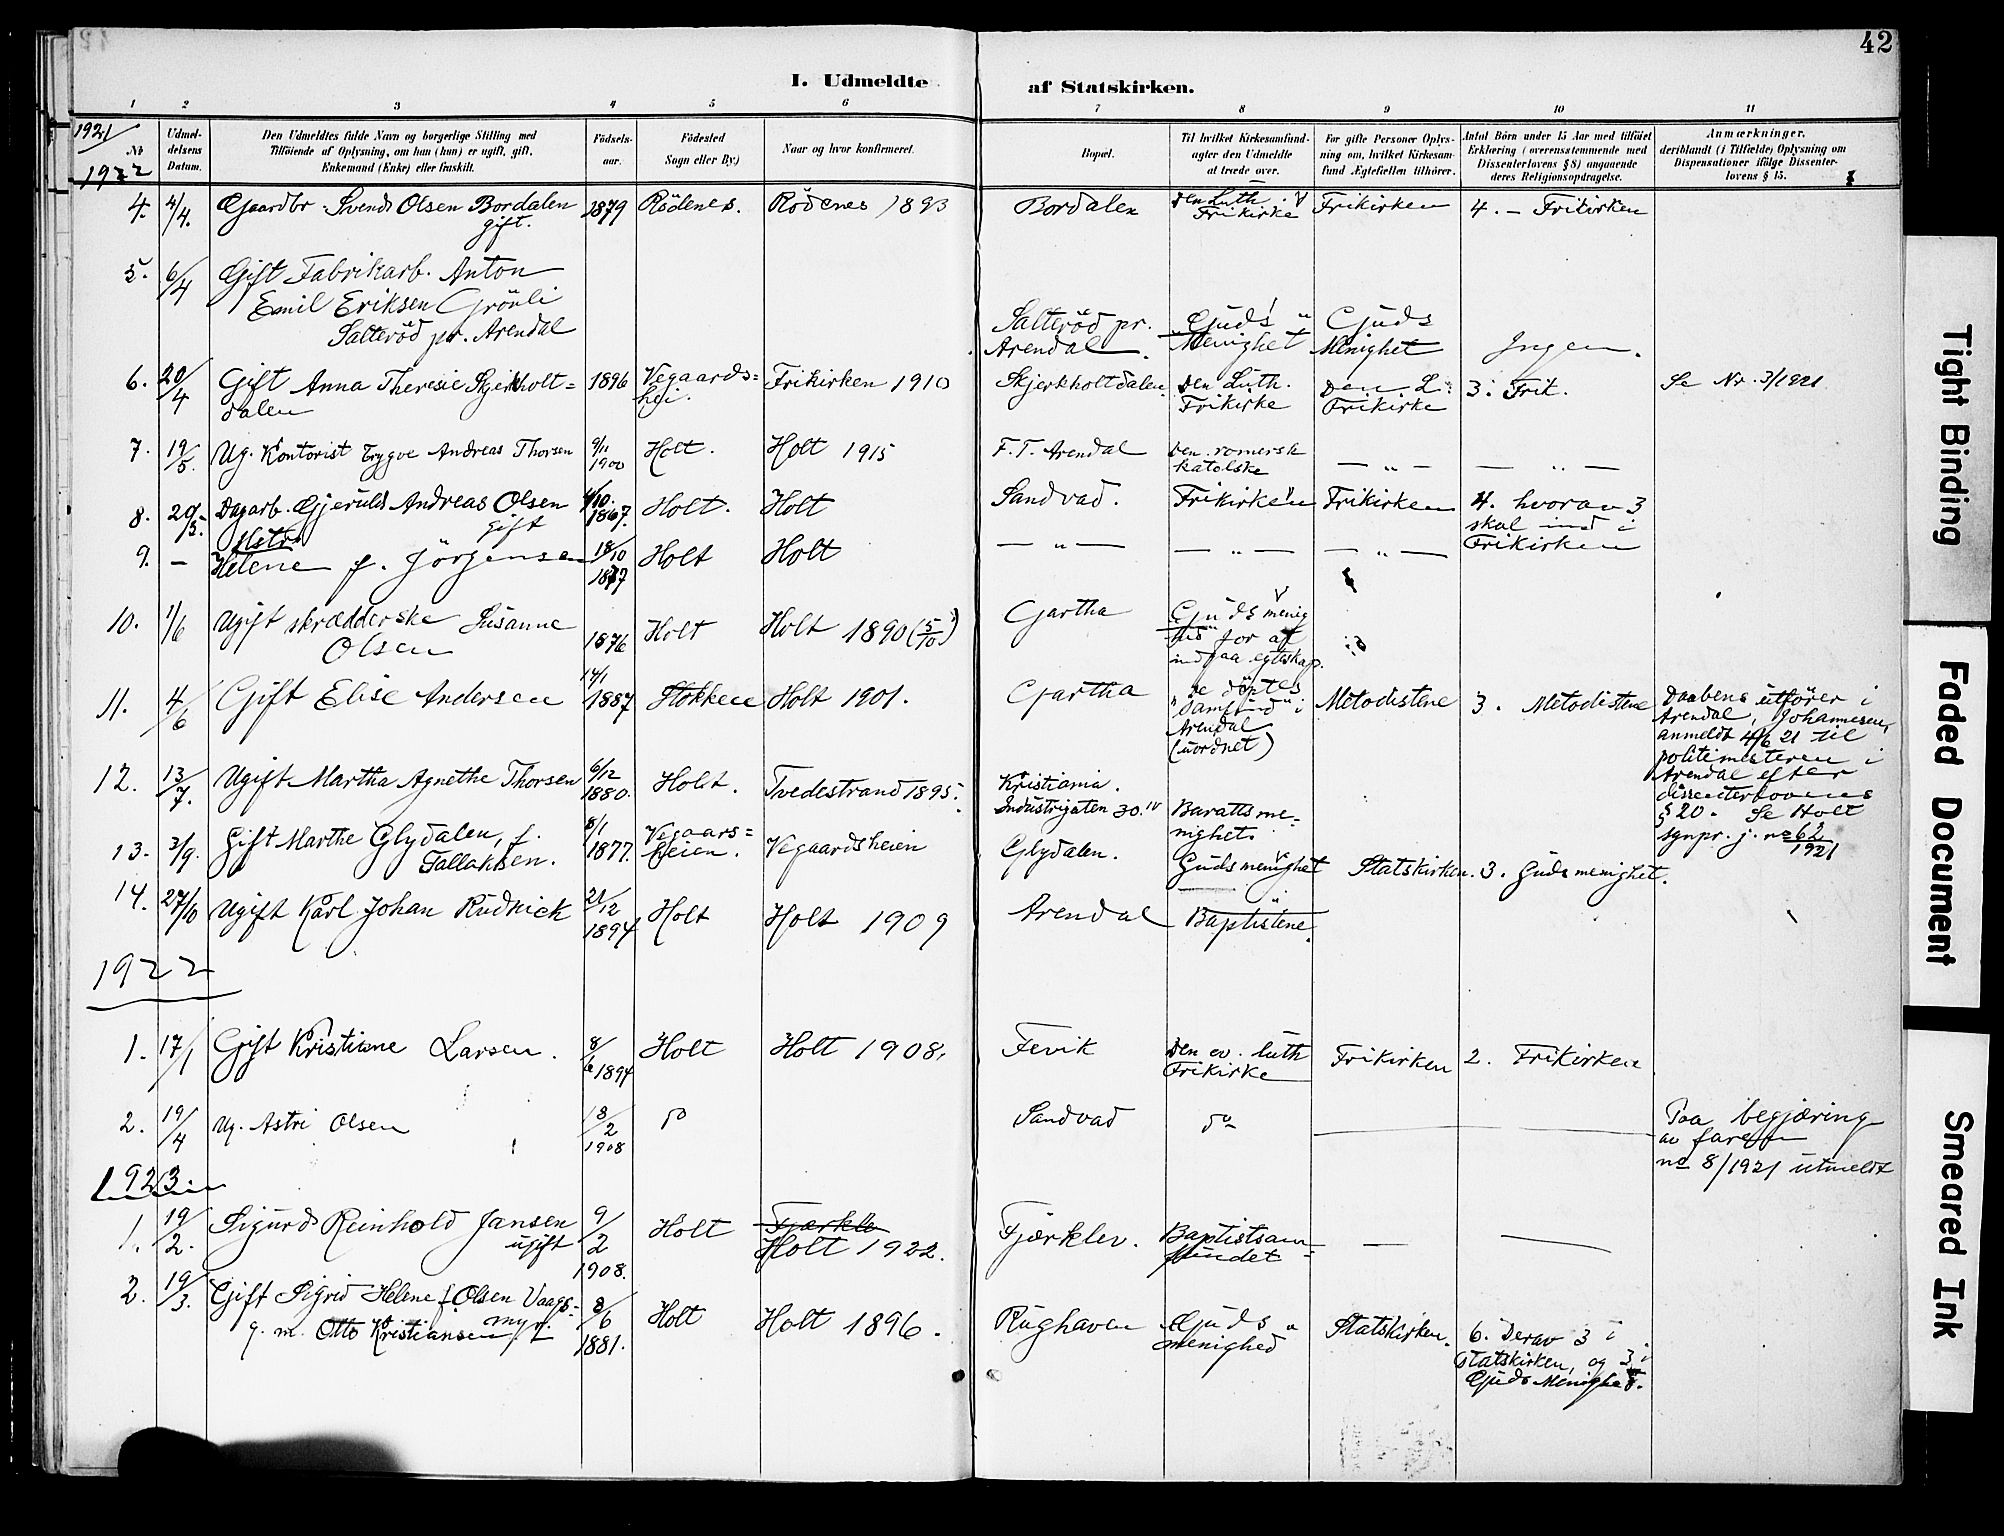 42
I. Udmeldte af Statskirken.
1 2 3 4 5 6 7 8 9 10 11
1921/
No
1922
Udmel-
delsens
Datum.
Den Udmeldtes fulde Navn og borgerlige Stilling med
Tilföiende af Oplysning, om han (hun) er ugift, gift,
Enkemand (Enke) eller fraskilt.
Födsels-
aar.
Födested
Sogn eller By.)
Naar og hvor konfirmeret.
Bopæl.
Til hvilket Kirkesamfund-
agter den Udmeldte
at træde over.
For gifte Personer Oplys-
ning om, hvilket Kirkesam-
fund Ægtefællen tilhörer.
Antal Börn under 15 Aar med tilföiet
Erklæring (overensstemmende med
Dissenterlovens § 8) angaaende
deres Religionsopdragelse.
Anmærkninger,
deriblandt (i Tilfælde) Oplysning om
Dispensationer ifölge Dissenter-
lovens § 15.
4. 4/4. Gaardbr. Svend Olsen Bordalen 1879 Rödenes. Rödenes 1893 Bordalen Den Luth. Frikirken 4. - Frikirken
gift. Frikirke
5. 6/4 Gift Fabrikarb. Anton
Emil Eriksen Grönli
Salteröd pr. Arendal Salteröd pr. Guds Guds
Arendal. Menighet Menighet Ingen.
6. 20/4 Gift Anna Theresie Skjerkholt= 1896 Vegaards= Frikirken 1910 Skjerkholtdalen Den Luth. Den L. 3 i Frik. Se Nr. 3/1921
dalen hei. Frikirke Frikirke
7. 19/5. Ug. Kontorist Trygve Andreas Thorsen 9/11 1900 Holt. Holt 1915 F. T. Arendal Den romersk — „ — — „ —
katolske
8. 20/5. Dagarb. Gjeruld Andreas Olsen 4/10. 1867. Holt. Holt Sandvad. Frikirken Frikirken 4. hvorav 3
gift skal ind i
Frikirken
9. — Helene f. Jörgensen 18/10 1877 Holt Holt — „ — — „ — — „ —
10. 1/6 Ugift skrædderske Susanne 1876 Holt Holt 1890 (5/10) Gjartha Guds menig
Olsen for at
ind paa egteskap.
11. 4/6 Gift Elise Andersen 14/1 1887 Flokken Holt 1901. Gjartha "De döptes Metodistene 3. Metodistene Daabens utförer i
samfund" i Arendal, Johannesen,
Arendal anmeldt 4/6 21 til
(uordnet) politimesteren i
Arendal efter
dissenterlovens
§ 20. Se Holt
sgnpr. j. no 62/1921
12. 13/7. Ugift Martha Agnethe Thorsen 6/12 1880. Holt. Tvedestrand 1895. Kristiania.
Industrigaten 30. IV Baratts me-
nighet.
13. 3/9. Gift Marthe Glydalen, f. 8/1 1877. Vegaars= Vegaardsheien Glydalen. Guds menighet Statskirken. 3. Guds menighet.
Tallaksen. heien.
14. 27/10 Ugift Karl Johan Rudnick 21/12 1894 Holt Holt 1909 Arendal Baptistene.
1922
1. 17/1 Gift Kristiane Larsen. 8/6 1894 Holt Holt 1908. Fevik Den ev. luth Frikirken 2. Frikirken
Frikirke
2. 19/4 Ug. Astri Olsen 18/2 1908 do Sandvad do Paa begjæring
av faren
no 8/1921 utmeldt
1923.
1. 19/2. Sigurd Reinhold Jansen 9/2 1908. Holt Fjærklev Fjærklev. Baptistsam- — —
ugift Holt 1922. fundet
2. 19/3. Gift Sigrid Helene f. Olsen Vaags- 8/6 1881. Holt Holt 1896. Rughaven Guds Statskirken. 6. Derav 3 i
myr. menighed statskirken, og 3 i
g. m. Otto Kristiansen Guds Menighet.
Tight Binding
Faded Document
Smeared Ink